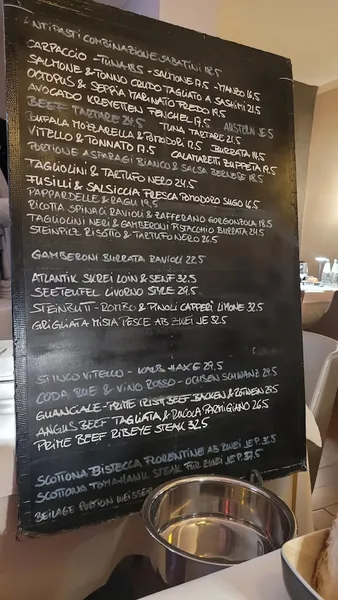 ANTIPASTI COMBINAZIONE SABATINI 18.5
CARPACCIO - TUNA 18.5 - SALMONE 17.5 - MANZO 16.5
SALMONE & TONNO CRUDO TAGLIATO A SASHIMI 21.5
OCTOPUS & SEPPIA MARINATO FREDO 19.5
AVOCADO KREVETTEN FENCHEL 17.5 AUSTERN JE 5
BEEF TATARE 24.5 TUNA TATARE 21.5
BUFFALA MOZZARELLA & POMODORI 17.5 BURRATA 14.5
VITELLO & TONNATO 17.5 CALAMARETTI ZUPPETTA 19.5
PORTIONE ASPARAGI BIANCO & SALSA BERNESE 18.5
TAGLIOLINI & TARTUFO NERO 24.5
FUSILLI & SALSICCIA FRESCA POMODORO SUGO 16.5
PAPPARDELLE & RAGU 19.5
RICOTTA SPINACI RAVIOLI & ZAFFERANO GORGONZOLA 18.5
TAGLIOLINI NERI & GAMBERONI PISTACCHIO BURRATA 24.5
STEINPILZ RISOTTO & TARTUFO NERO 26.5
GAMBERONI BURRATA RAVIOLI 22.5
ATLANTIK SKREI LOIN & SENF 32.5
SEETEUFEL LIVORNO STYLE 29.5
STEINBUTT - ROMBO & PINOLI CAPPERI LIMONE 32.5
GRIGLIATA MISTA PESCE AB ZWEI JE 32.5
STINCO VITELLO - KALBSHAXE 29.5
CODA BUE & VINO ROSSO - OCHSENSCHWANZ 29.5
GUANCIALE - PRIME IRISH BEEF BACKEN & ROTWEIN 29.5
ANGUS BEEF TAGLIATA & RUCOLA PARMIGIANO 26.5
PRIME BEEF RIBEYE STEAK 32.5
SCOTTONA BISTECCA FLORENTINE AB ZWEI JE P.
SCOTTONA TOMAHAWK STEAK FÜR ZWEI JE P. 37.5
BEILAGE PORTION WEISSER